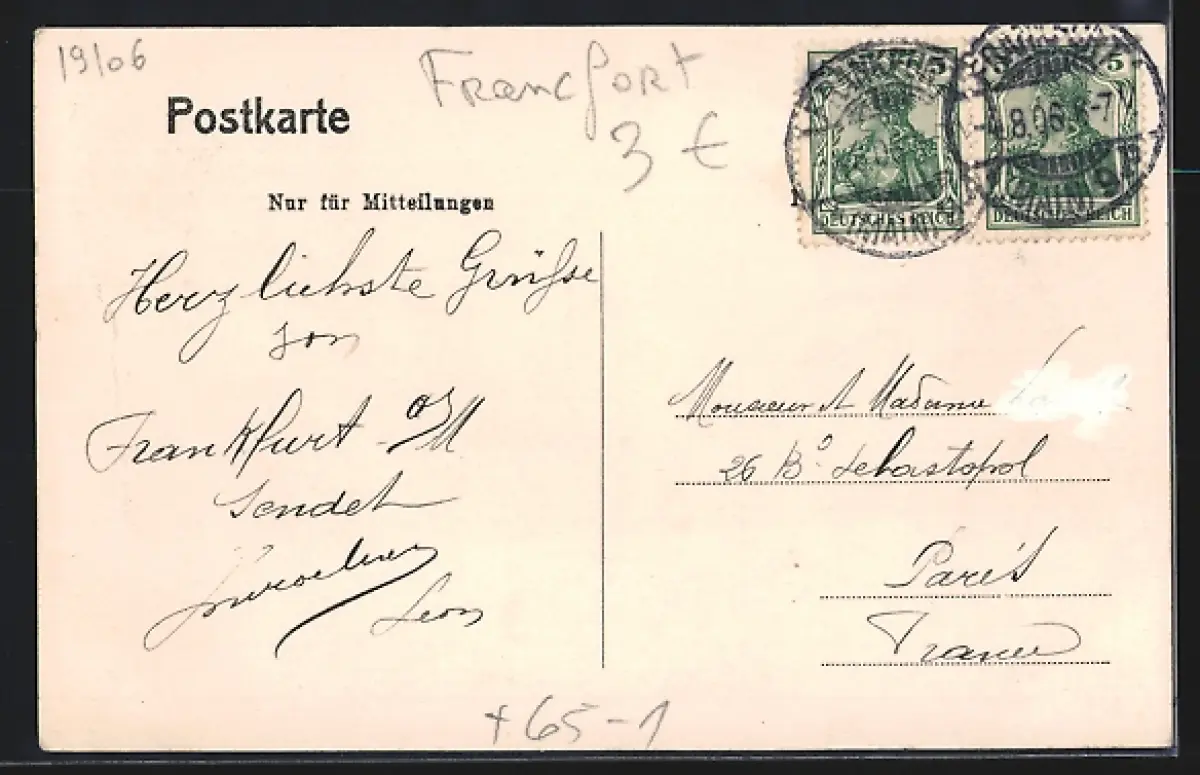 19/06
Francfort
3 €
Postkarte
Nur für Mitteilungen
5
5
FRANKFURT
-4.8.06.6-7
(MAIN)
(MAIN) 9
DEUTSCHES REICH
DEUTSCHES REICH
Herzlichste Grüße
von
Frankfurt a/M
sendet
Leon
Monsieur et Madame
26 Bd Sebastopol
Paris
France
+65-1